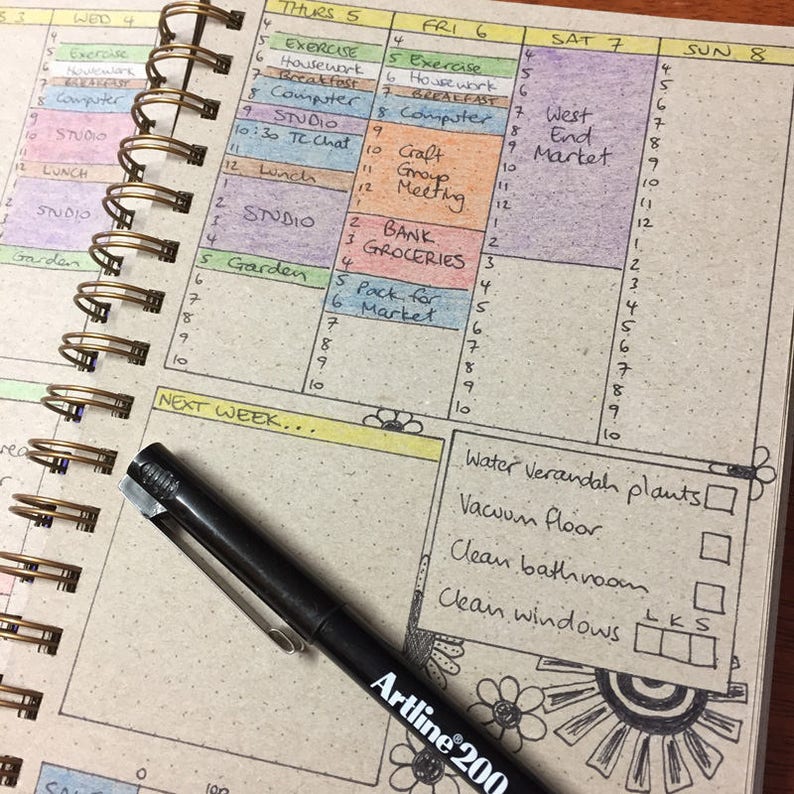 S 3
WED 4
4
5 Exercise
6 Housework
7 BREAKFAST
8 Computer
9
10 STUDIO
11
12 LUNCH
1
2 STUDIO
3
Garden
THURS 5
4
5 EXERCISE
6 Housework
7 Breakfast
8 Computer
9 STUDIO
10:30 TC Chat
11
12 Lunch
1
2 STUDIO
3
4
5 Garden
6
7
8
9
10
FRI 6
4
5 Exercise
6 Housework
7 BREAKFAST
8 Computer
9
10 Craft
11 Group
12 Meeting
1
2 BANK
3 GROCERIES
4
5 Pack for
6 Market
7
8
9
10
SAT 7
4
5
6
7 West
8 End
9 Market
10
11
12
1
2
3
4
5
6
7
8
9
10
SUN 8
4
5
6
7
8
9
10
11
12
1
2
3
4
5
6
7
8
9
10
NEXT WEEK...
Water verandah plants
Vacuum floor
Clean bathroom
Clean windows
L K S
Artline®200
0